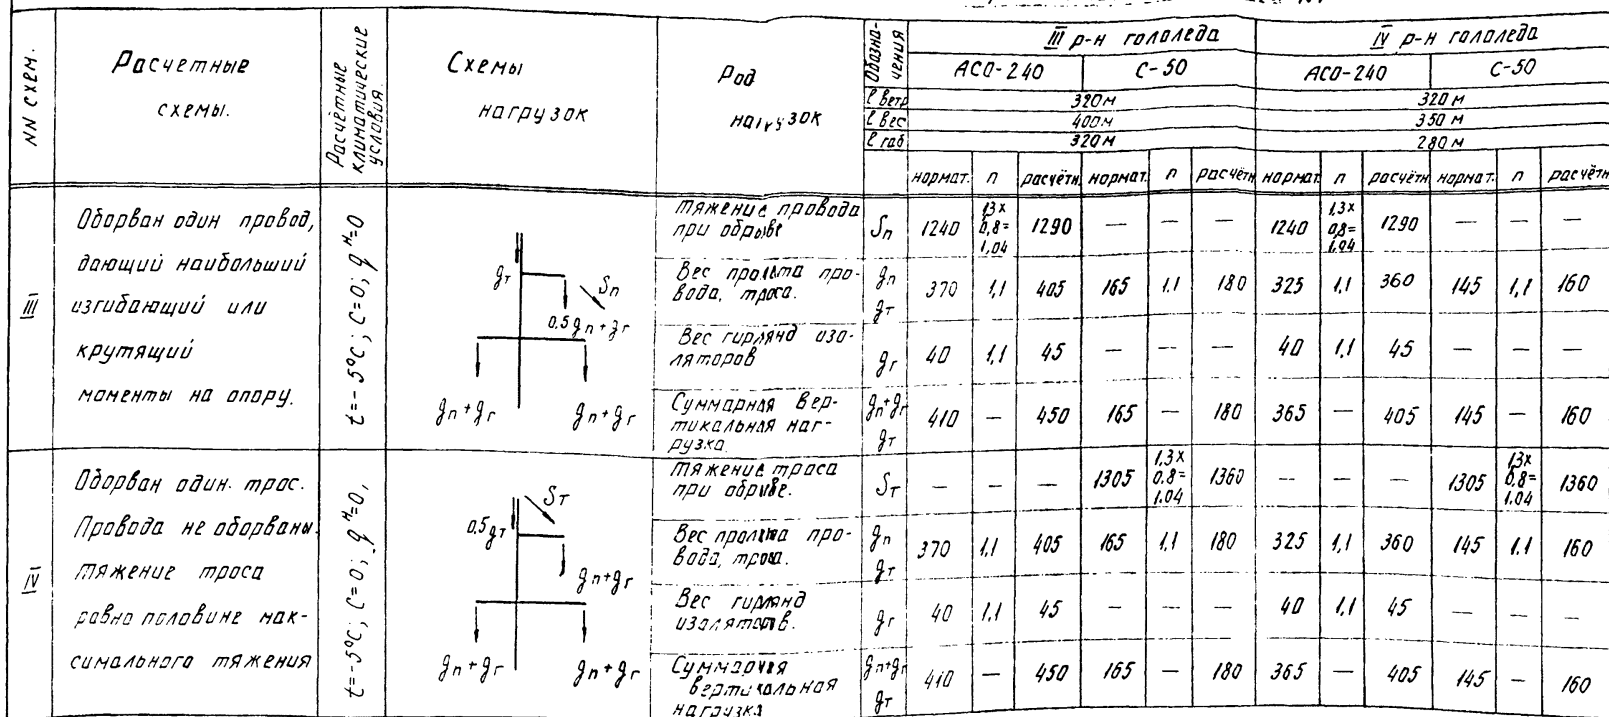 NN схем.
Расчетные
схемы.
Расчётные
климатические
условия.
Схемы
нагрузок
Род
нагрузок
Обозна-
чения
III р-н гололеда
IV р-н гололеда
АСО-240 С-50 АСО-240 С-50
ℓ ветр 320м 320м
ℓ вес 400м 350м
ℓ габ 320м 280м
нормат. n расчётн нормат. n расчётн нормат n расчётн нормат. n расчётн
III
Оборван один провод,
дающий наибольший
изгибающий или
крутящий
моменты на опору.
t=-5°C; C=0; q^н=0
gт
Sп
0.5gп+gг
gп+gг gп+gг
Тяжение провода
при обрыве
Sп 1240 1,3х 0,8= 1,04 1290 — — — 1240 1,3х 0,8= 1,04 1290 — — —
Вес пролета про-
вода, троса.
gп gт 370 1,1 405 165 1.1 180 325 1.1 360 145 1,1 160
Вес гирлянд изо-
ляторов
gг 40 1,1 45 — — — 40 1,1 45 — — —
Суммарная вер-
тикальная наг-
рузка.
gп+gг gт 410 — 450 165 — 180 365 — 405 145 — 160
IV
Оборван один. трос.
Провода не оборваны.
Тяжение троса
равно половине мак-
симального тяжения
t=-5°C; C=0; q^н=0,
Sт
0.5gт
gп+gг
gп+gг gп+gг
Тяжение троса
при обрыве.
Sт — — — 1305 1.3х 0.8= 1.04 1360 — — — 1305 1,3х 0,8= 1.04 1360
Вес пролета про-
вода, троса.
gп gт 370 1.1 405 165 1,1 180 325 1,1 360 145 1.1 160
Вес гирлянд
изоляторов.
gг 40 1.1 45 — — — 40 1.1 45 — — —
Суммарная
вертикальная
нагрузка
gп+gг gт 410 — 450 165 — 180 365 — 405 145 — 160